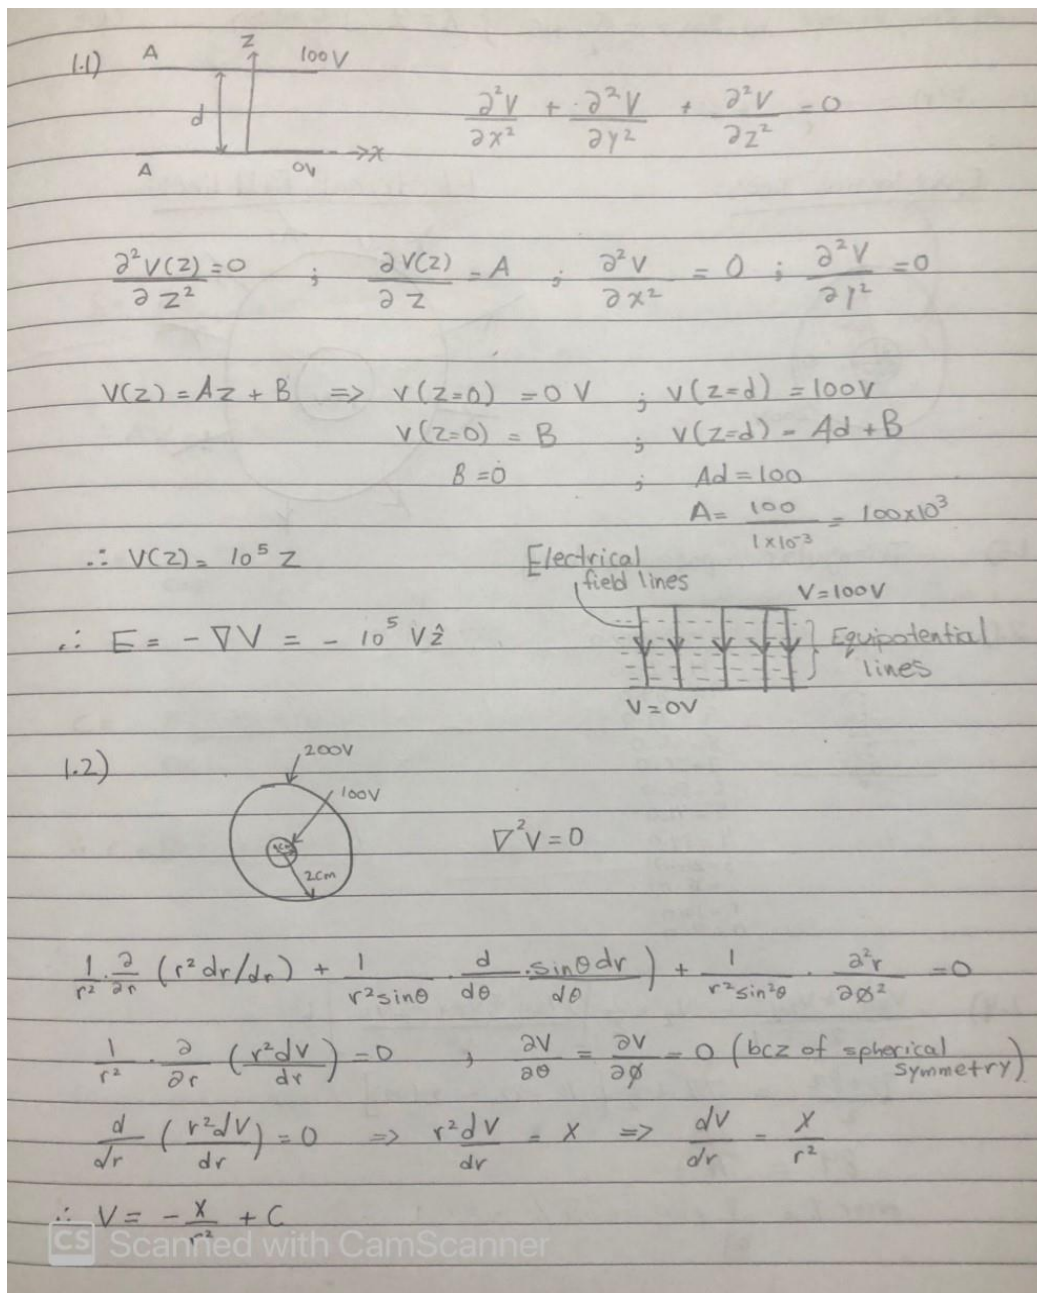 1.1) A Z 100V
d
A 0V →x
∂²V/∂x² + ∂²V/∂y² + ∂²V/∂z² = 0
∂²V(z)/∂z² = 0 ; ∂V(z)/∂z = A ; ∂²V/∂x² = 0 ; ∂²V/∂y² = 0
V(z) = Az + B => V(z=0) = 0 V ; V(z=d) = 100V
V(z=0) = B ; V(z=d) = Ad + B
B = 0 ; Ad = 100
A = 100/1x10⁻³ = 100x10³
∴ V(z) = 10⁵ z
Electrical
field lines
V=100V
∴ E = -∇V = -10⁵ Vẑ
Equipotential
lines
V=0V
1.2)
200V
100V
2cm
∇²V = 0
1/r² · ∂/∂r (r² dr/dr) + 1/r²sinθ · d/dθ · sinθ dr/dθ) + 1/r²sin²θ · ∂²r/∂ø² = 0
1/r² · ∂/∂r (r²dV/dr) = 0 , ∂V/∂θ = ∂V/∂ø = 0 (bcz of spherical
symmetry)
d/dr (r²dV/dr) = 0 => r²dV/dr = X => dV/dr = X/r²
∴ V = -X/r² + C
CS Scanned with CamScanner